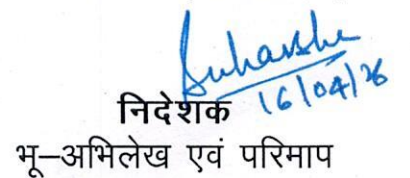 16/04/26
निदेशक
भू–अभिलेख एवं परिमाप